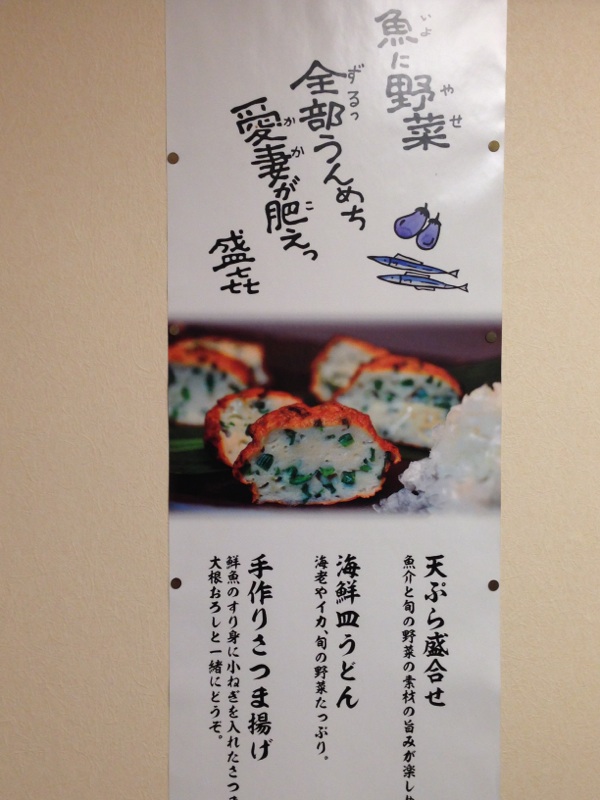 魚に野菜
いよ
やせ
全部うんめち
ずるっ
愛妻が肥えっ
かか
こ
盛㐂
天ぷら盛合せ
魚介と旬の野菜の素材の旨みが楽しめ
海鮮皿うどん
海老やイカ、旬の野菜たっぷり。
手作りさつま揚げ
鮮魚のすり身に小ねぎを入れたさつま
大根おろしと一緒にどうぞ。